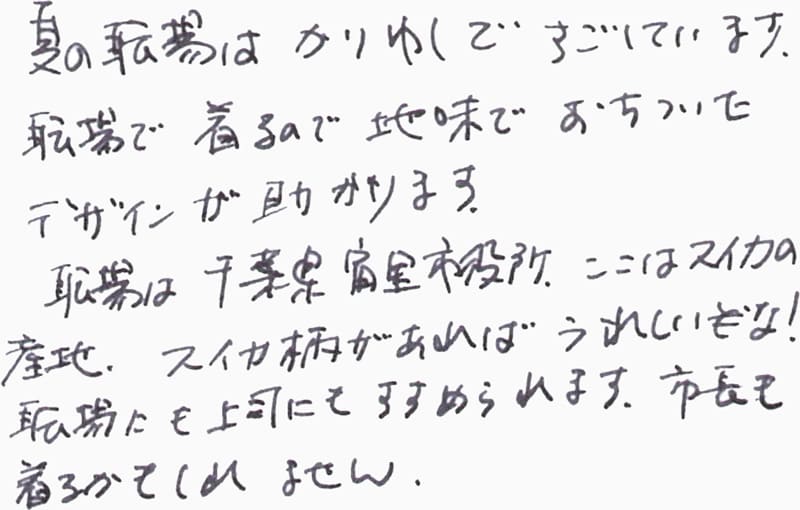 夏の転場は かりゆしで すごしています。
転場で 着るので 地味で おちついた
デザインが 助かります。
転場は 千葉県 富里市役所。ここはスイカの
産地。スイカ柄があれば うれしいぞな!
転場にも上司にも すすめられます。市長も
着るかもしれ ません.